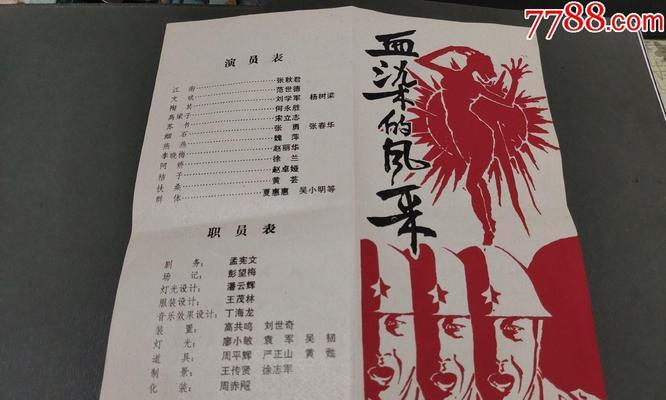 7788.com
中国收藏热线
血染的风采
演员表
江南……张秋君
文……范世德
陶其……刘学军 杨树梁
高梁子……何永胜
苏书……宋立志
烟石……张勇 张春华
燕燕……魏萍
李晓梅……赵丽华
阿娇……徐兰
桔子……赵卓娅
扶桑……黄芸
群体……夏惠惠 吴小明等
职员表
剧务：孟宪文
场记：彭望梅
灯光设计：潘云辉
服装设计：王茂林
音乐效果设计：丁海龙
装置：高共鸣 刘世奇
灯光：廖小敏 袁军 吴韧
道具：周平辉 严正山 黄甦
制景：王传贤 徐志军
化装：周赤飚